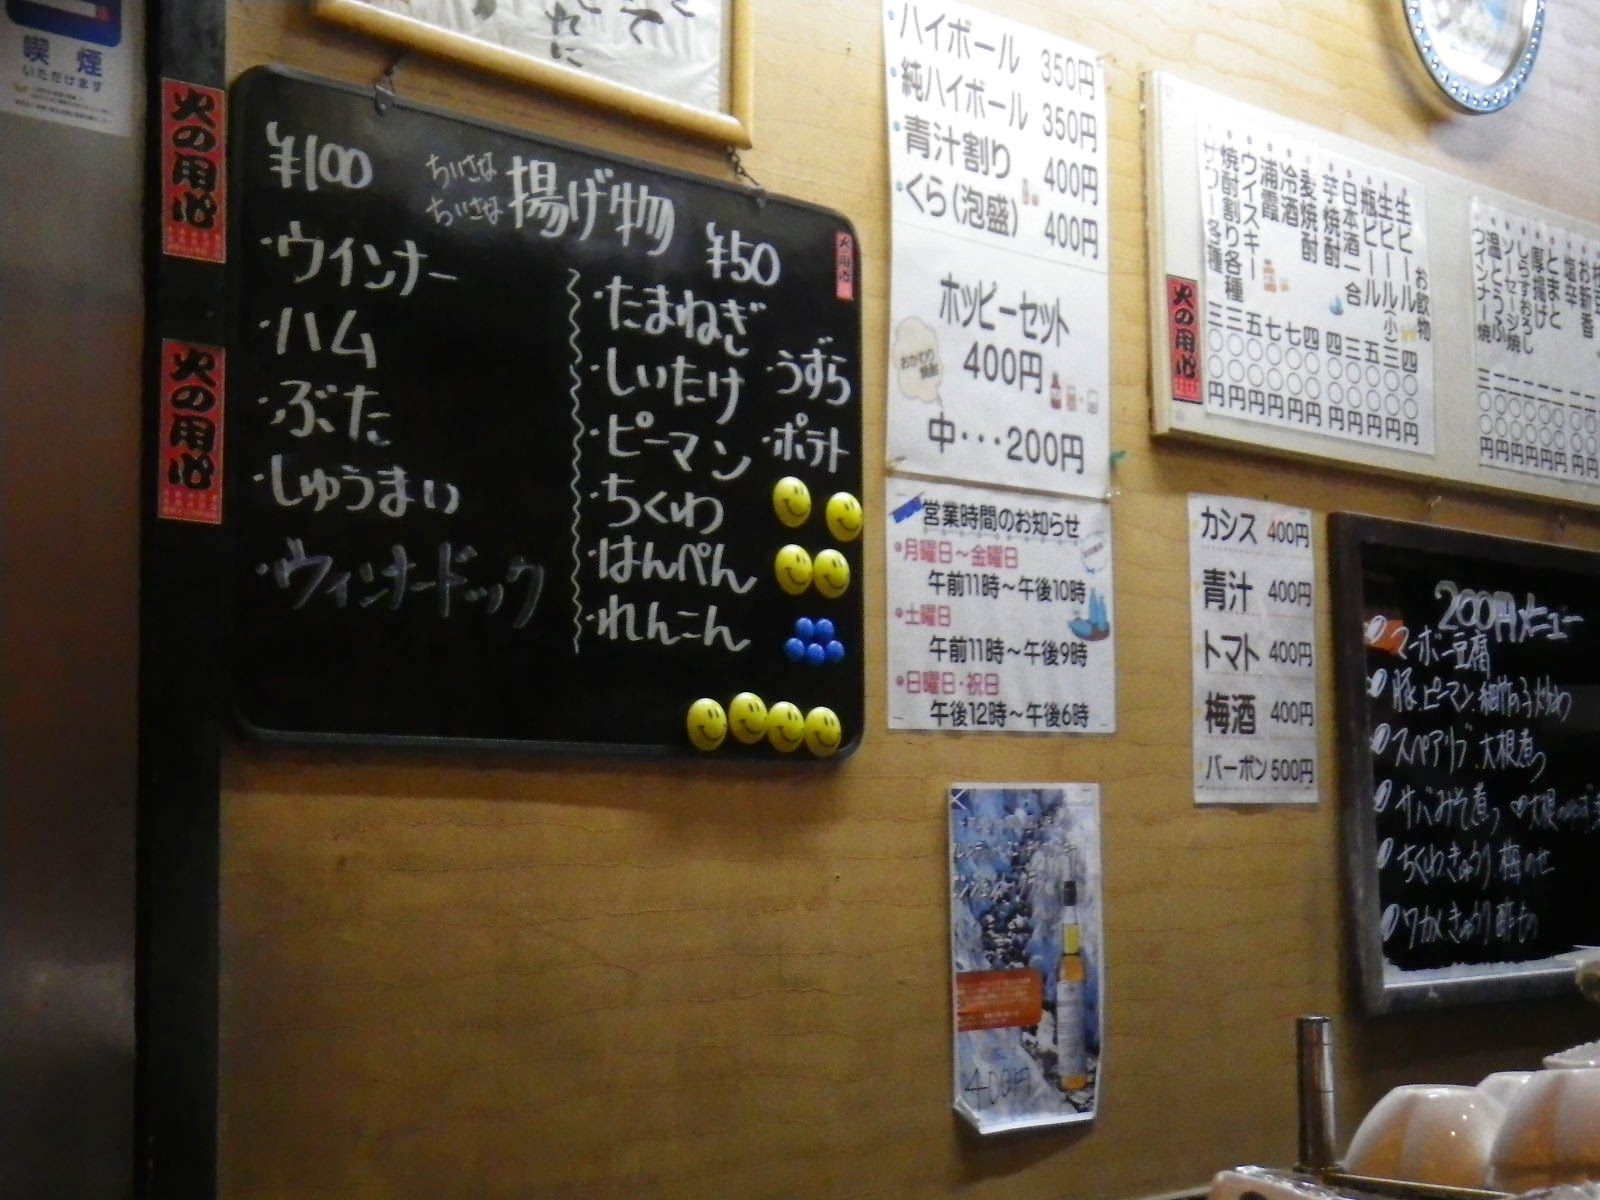 喫煙
いただけます
火の用心
火の用心
¥100
ちいさな
ちいさな
揚げ物
¥50
・ウインナー
・ハム
・ぶた
・しゅうまい
・ウィンナードック
・たまねぎ
・しいたけ
・ピーマン
・ちくわ
・はんぺん
・れんこん
・うずら
・ポテト
火の用心
ハイボール 350円
純ハイボール 350円
青汁割り 400円
くら(泡盛) 400円
ホッピーセット
400円
おかわり
中・・・200円
営業時間のお知らせ
月曜日～金曜日
午前11時～午後10時
土曜日
午前11時～午後9時
日曜日・祝日
午後12時～午後6時
400円
火の用心
お飲物
生ビール 四〇〇円
生ビール(小) 三〇〇円
瓶ビール 五〇〇円
日本酒一合 三〇〇円
芋焼酎 四〇〇円
麦焼酎 四〇〇円
冷酒 七〇〇円
浦霞 七〇〇円
ウイスキー 五〇〇円
焼酎割り各種 三〇〇円
サワー各種 三〇〇円
お新香
塩辛
とまと
厚揚げ
しらすおろし
ソーセージ焼
温とうふ
ウインナー焼
カシス 400円
青汁 400円
トマト 400円
梅酒 400円
バーボン 500円
200円メニュー
マーボー豆腐
豚.ピーマン.細竹の子炒め
スペアリブ.大根煮
サバみそ煮
ちくわきゅうり梅のせ
ワカメきゅうり酢もの